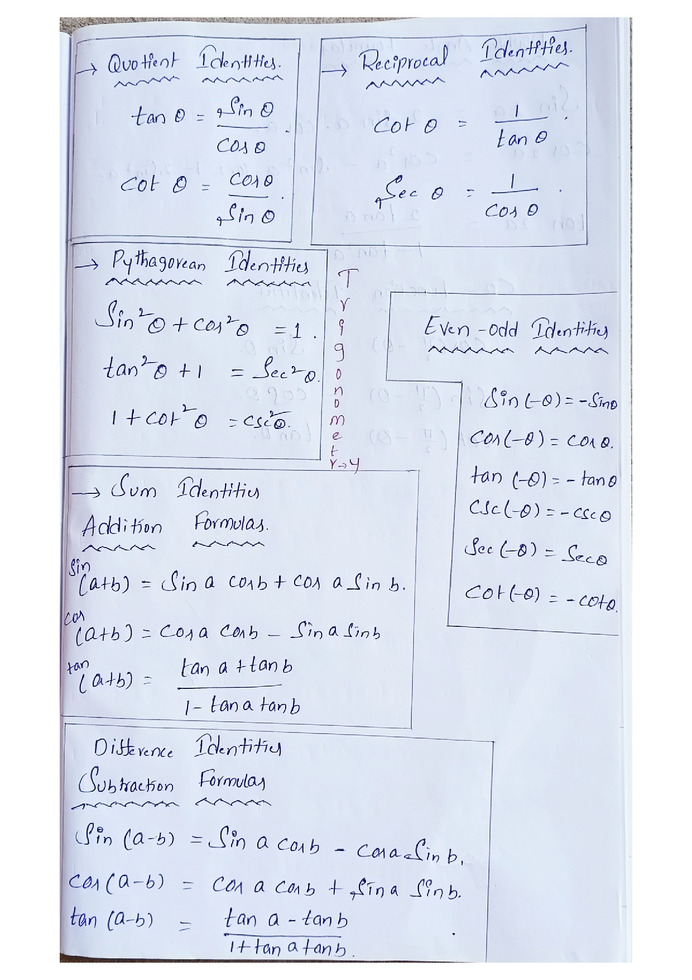 → Quotient Identities.
tan θ = Sin θ / cos θ .
cot θ = cosθ / Sin θ .
→ Reciprocal Identities.
cot θ = 1 / tan θ .
Sec θ = 1 / cos θ .
→ Pythagorean Identities
Sin²θ + cos²θ = 1 .
tan²θ + 1 = Sec²θ.
1 + cot²θ = csc²θ.
Trigonometr→y
Even-odd Identities
Sin(-θ) = -Sinθ
cos(-θ) = cosθ.
tan (-θ) = - tanθ
csc(-θ) = -cscθ
Sec (-θ) = Secθ
cot(-θ) = -cotθ.
→ Sum Identities
Addition Formulas.
sin (a+b) = Sin a cosb + cos a Sin b.
cos (a+b) = cosa cosb - Sin a Sinb
tan (a+b) = tan a + tan b / 1 - tan a tan b
Difference Identities
Subtraction Formulas
Sin (a-b) = Sin a cosb - cosa Sin b.
cos(a-b) = cos a cosb + Sina Sinb.
tan (a-b) = tan a - tan b / 1 + tan a tan b.